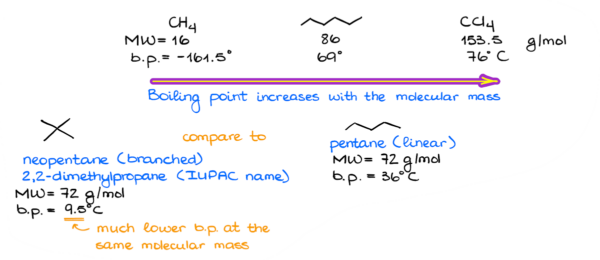 CH4 CCl4
MW= 16 86 153.5 g/mol
b.p.= -161.5° 69° 76° C
Boiling point increases with the molecular mass
compare to
neopentane (branched)
2,2-dimethylpropane (IUPAC name)
MW= 72 g/mol
b.p. = 9.5°C
much lower b.p. at the
same molecular mass
pentane (linear)
MW= 72 g/mol
b.p. = 36°C